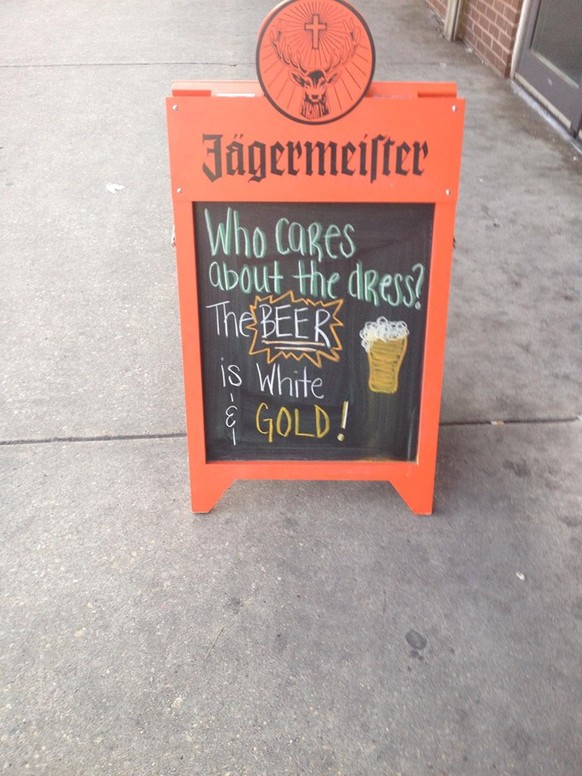 Jägermeister
Who Cares
about the dress?
The BEER
is White
& GOLD!